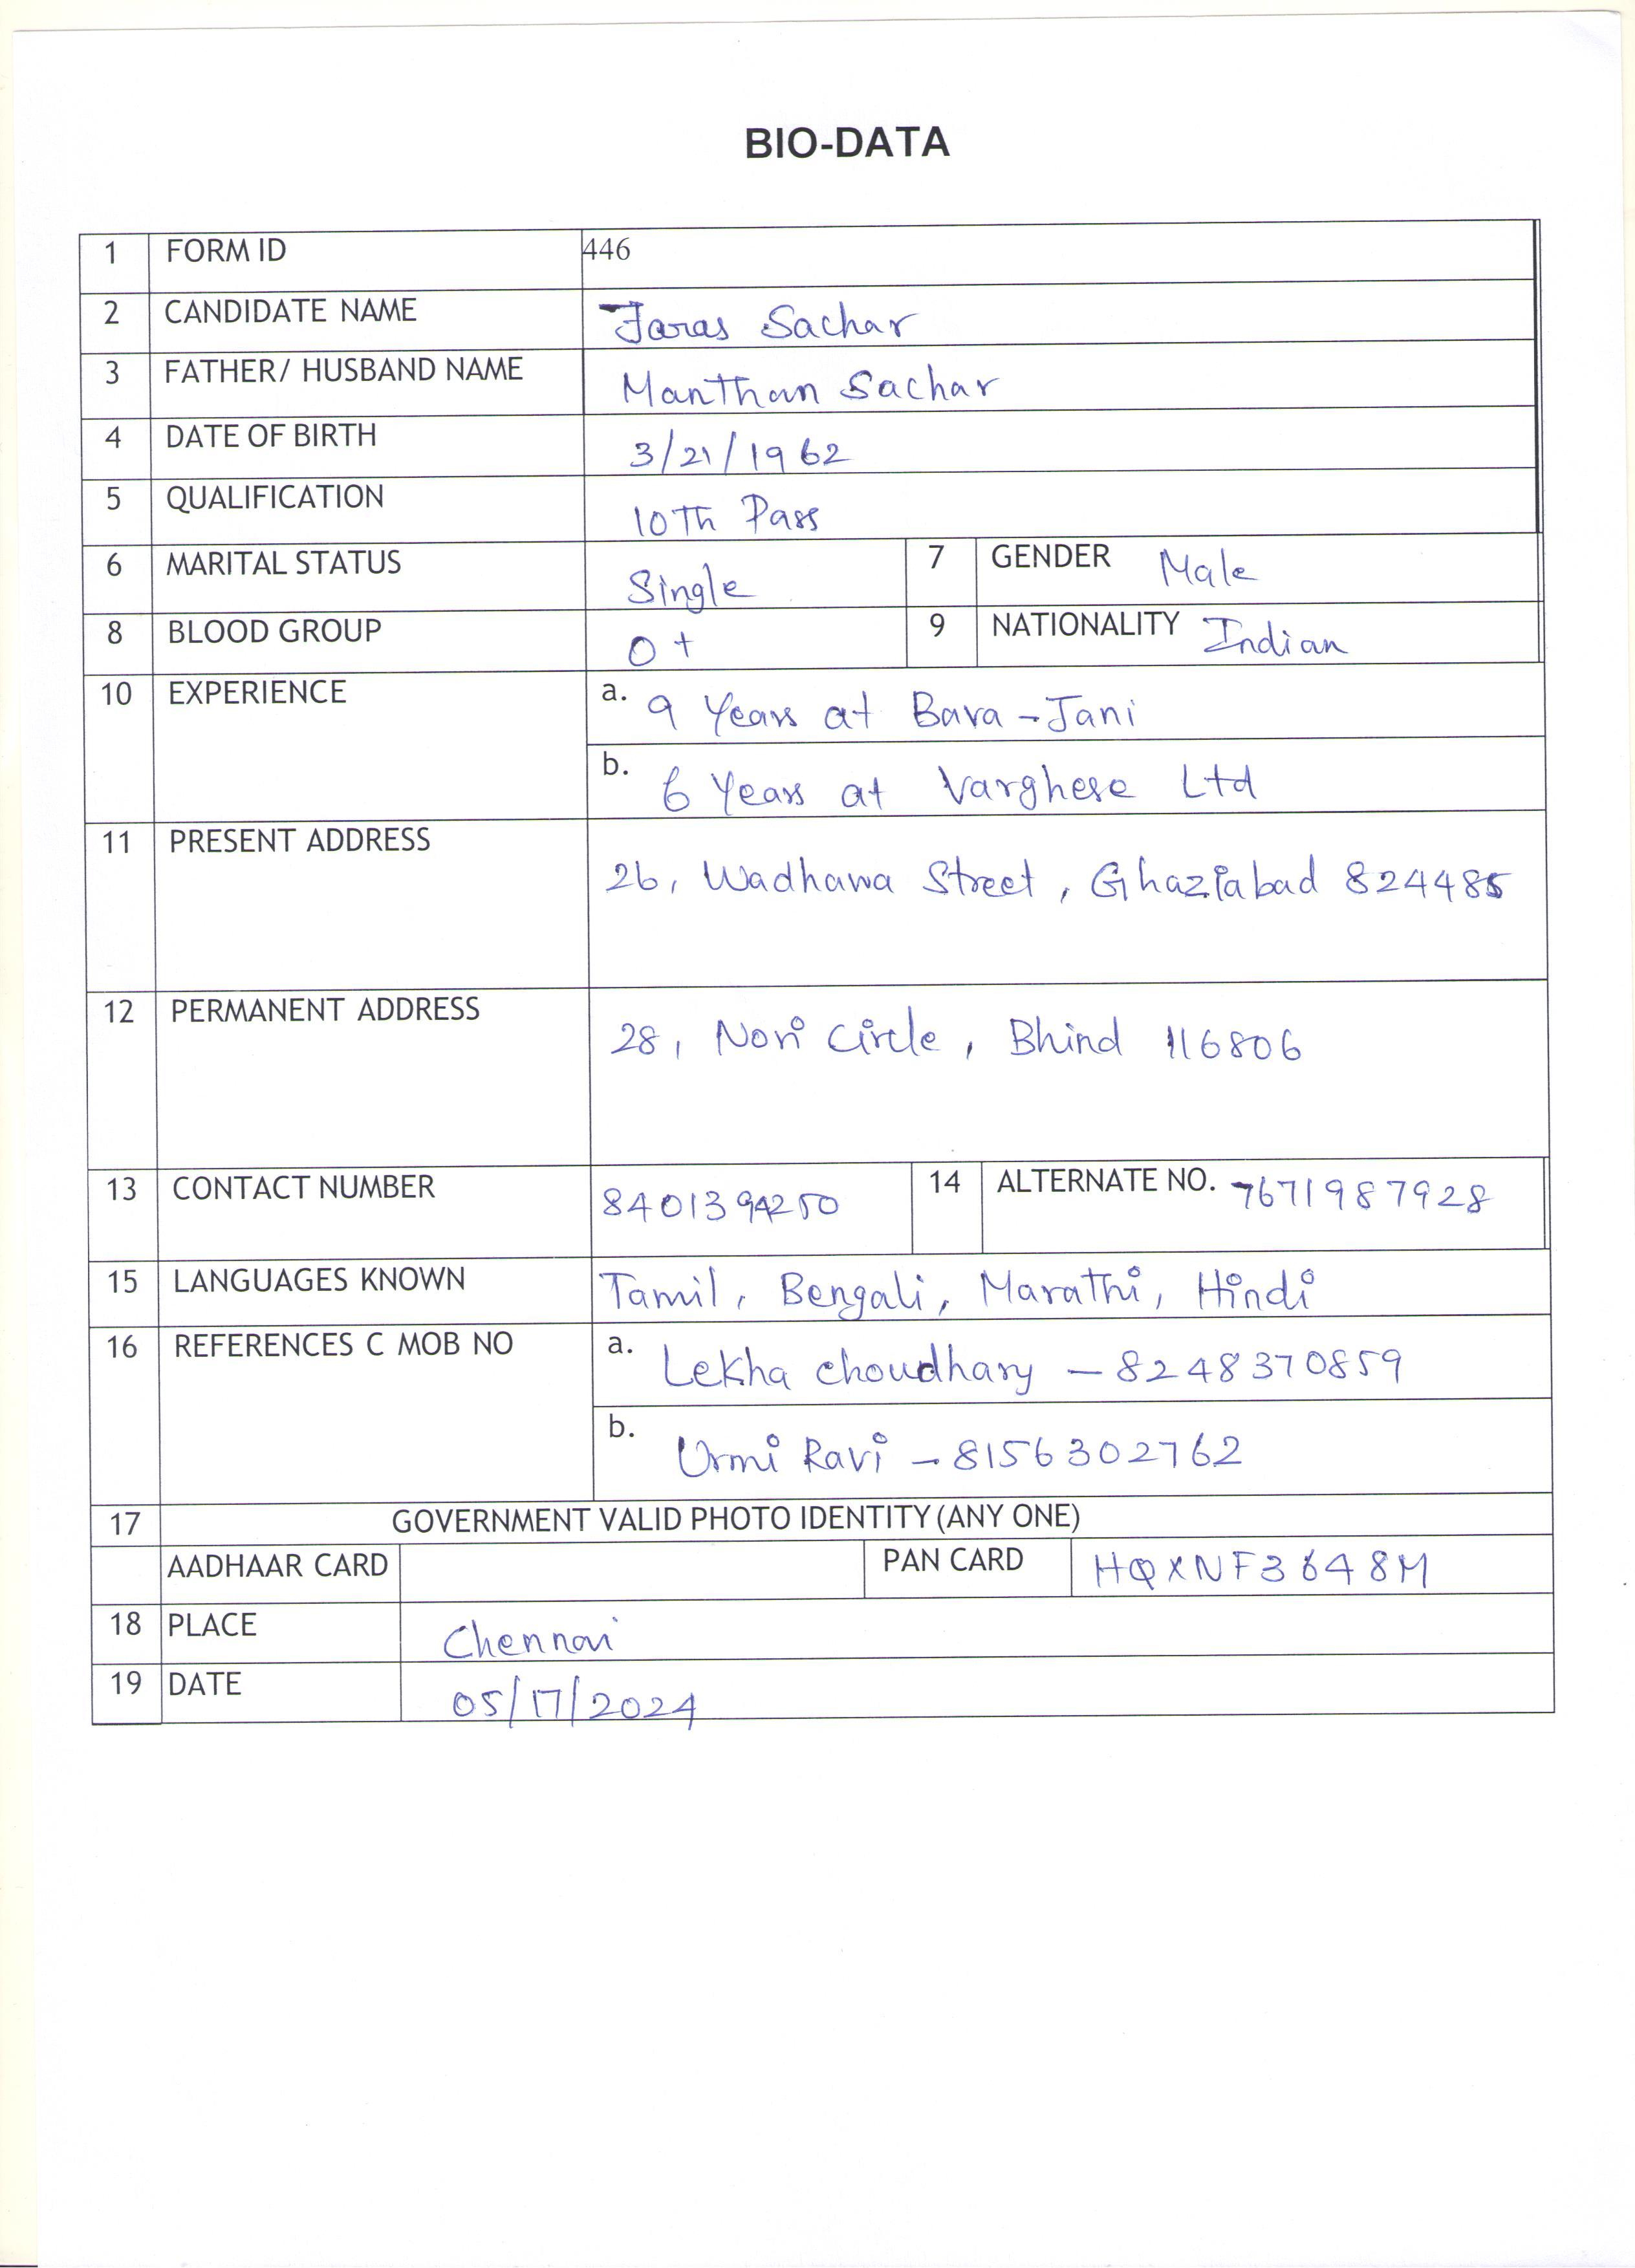 BIO-DATA
1 FORM ID 446
2 CANDIDATE NAME Jaras Sachar
3 FATHER/ HUSBAND NAME Manthan Sachar
4 DATE OF BIRTH 3/21/1962
5 QUALIFICATION 10Th Pass
6 MARITAL STATUS Single 7 GENDER Male
8 BLOOD GROUP O+ 9 NATIONALITY Indian
10 EXPERIENCE a. 9 Years at Bava-Jani
b. 6 Years at Varghese Ltd
11 PRESENT ADDRESS 26, Wadhawa Street, Ghaziabad 824485
12 PERMANENT ADDRESS 28, Nori Circle, Bhind 116806
13 CONTACT NUMBER 8401394250 14 ALTERNATE NO. 7671987928
15 LANGUAGES KNOWN Tamil, Bengali, Marathi, Hindi
16 REFERENCES C MOB NO a. Lekha Choudhary - 8248370859
b. Urmi Ravi - 8156302762
17 GOVERNMENT VALID PHOTO IDENTITY(ANY ONE)
AADHAAR CARD PAN CARD HQXNF3648M
18 PLACE Chennai
19 DATE 05/17/2024